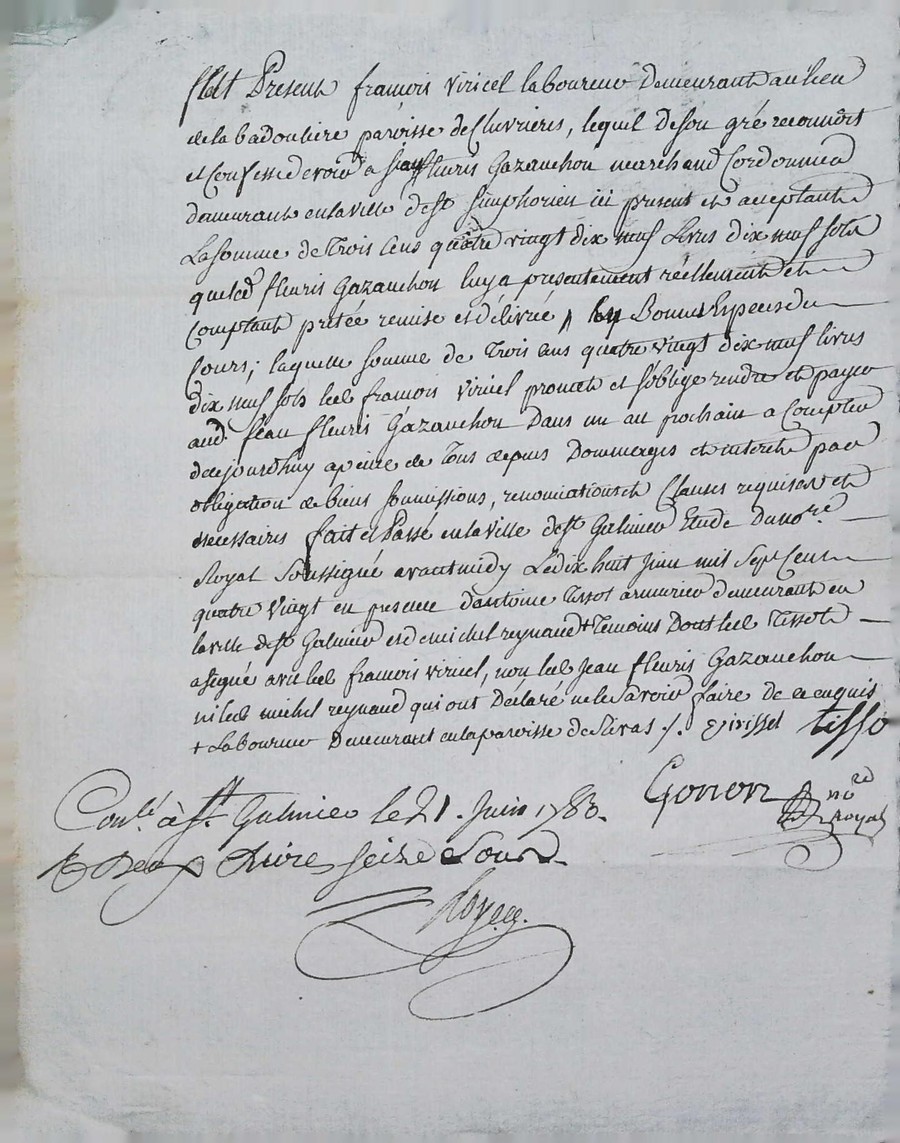 fut Present francois viricel laboureur demeurant au lieu
de la badouliere paroisse de Chevrieres, lequel de son gré reconnoit
et Confesse devoir a Jean fleuris Gazanchon marchand Cordonnier
demeurant en la ville de st simphorien ici present et acceptant
La somme de Trois Cens quatre vingt dix neuf Livres dix neuf sols
que led fleuris Gazanchon luy a presentement réellement et
Comptant prétée remise et délivrée, en Bonnes Especes du
Cours; laquelle somme de Trois Cens quatre vingt dix neuf livres
dix neuf sols led francois viricel promet et s'oblige rendre et payer
aud. Jean fleuris Gazanchon Dans un an prochain a Compter
daujourdhuy apeine de Tous depens Dommages et interets par
obligation de biens soumissions, renonciations et Clauses requises et
necessaires fait et Passé en la ville de st Galmier Etude du no.re
Royal Soussigné avant midy Le dix huit Juin mil Sept Cent
quatre vingt en presence d'antoine Tissot armurier demeurant en
la ville de st Galmier et de michel reynaud + Temoins Dont led Tissot
a signé avec led francois viricel, non led Jean fleuris Gazanchon
ni led michel reynaud qui ont Déclaré ne le savoir faire de ce enquis
+ Laboureur Demeurant en la paroisse de Rivas ./. virissel tisso
Gonon no.re Royal
Con.lé à st. Galmier le 21. Juin 1780.
R Deux Livre seize Sous
Royer